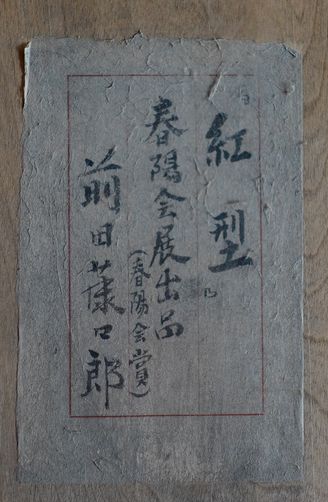 紅型
春陽会展出品
(春陽会賞)
前田藤四郎